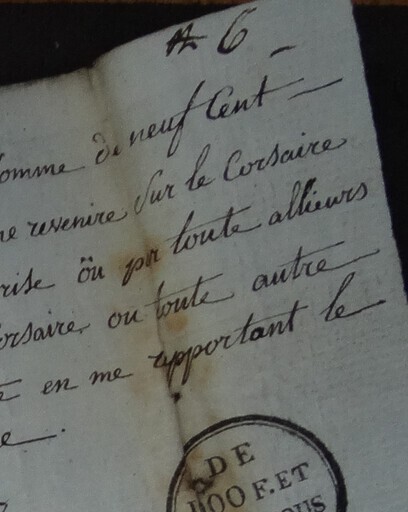 6
Somme de neuf Cent
me revenire Sur le Corsaire
rise öu par toute allieurs
orsaire, ou toute autre
en me rapportant le
e.
DE
00 F. ET
OUS